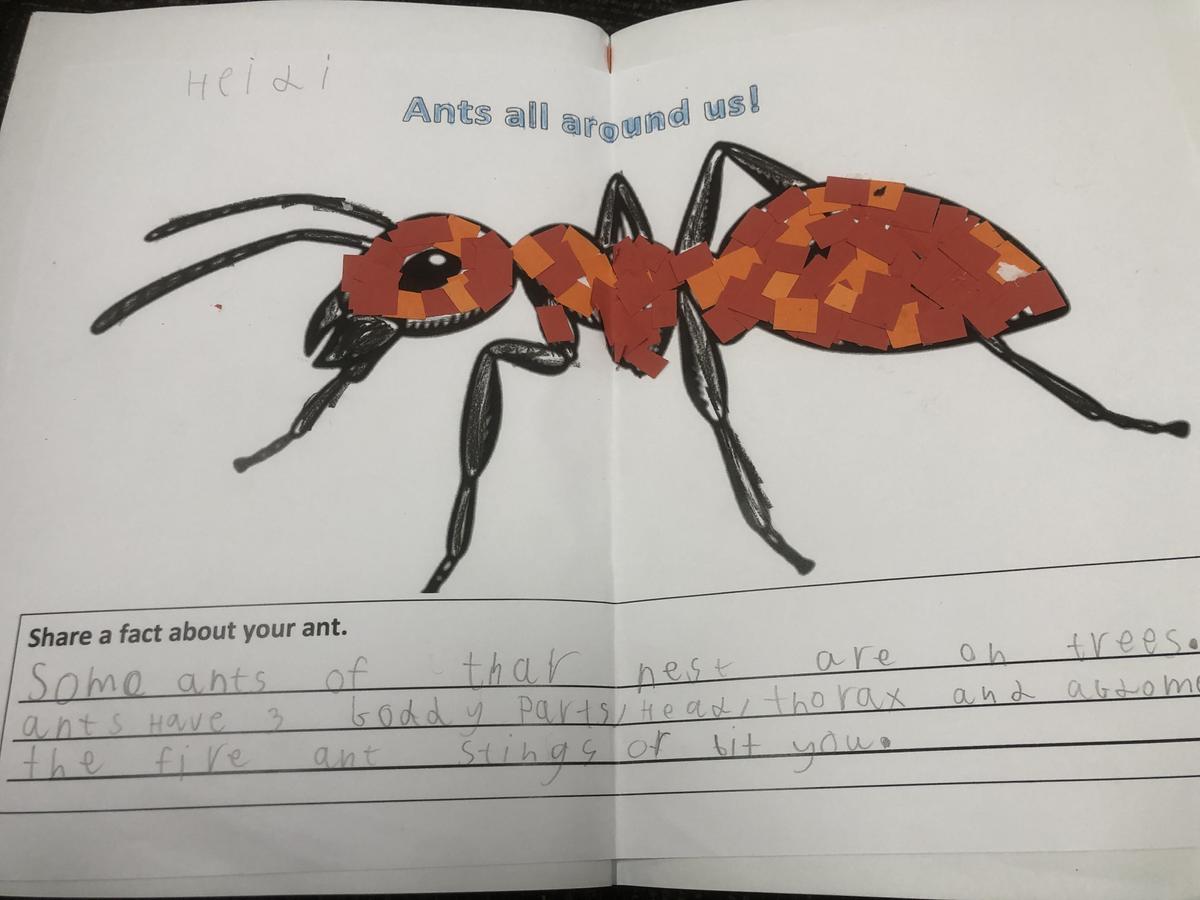 Heidi
Ants all around us!
Share a fact about your ant.
Some ants of thar nest are on trees.
ants Have 3 boddy Parts, Head, thorax and abdome
the fire ant stings or bit you.